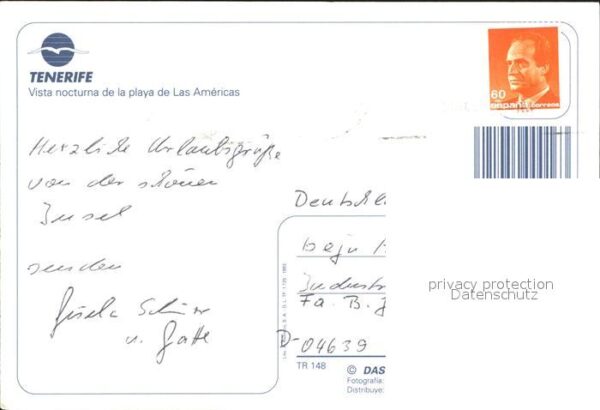 TENERIFE
Vista nocturna de la playa de Las Américas
60
España correos
Herzliche Urlaubsgrüße
von der schönen
Insel
senden
Gisela
u. Gatte
Deutschl
Industr
Fa. B. J
D-04639
TR 148
© DAS
Fotografía:
Distribuye:
privacy protection
Datenschutz